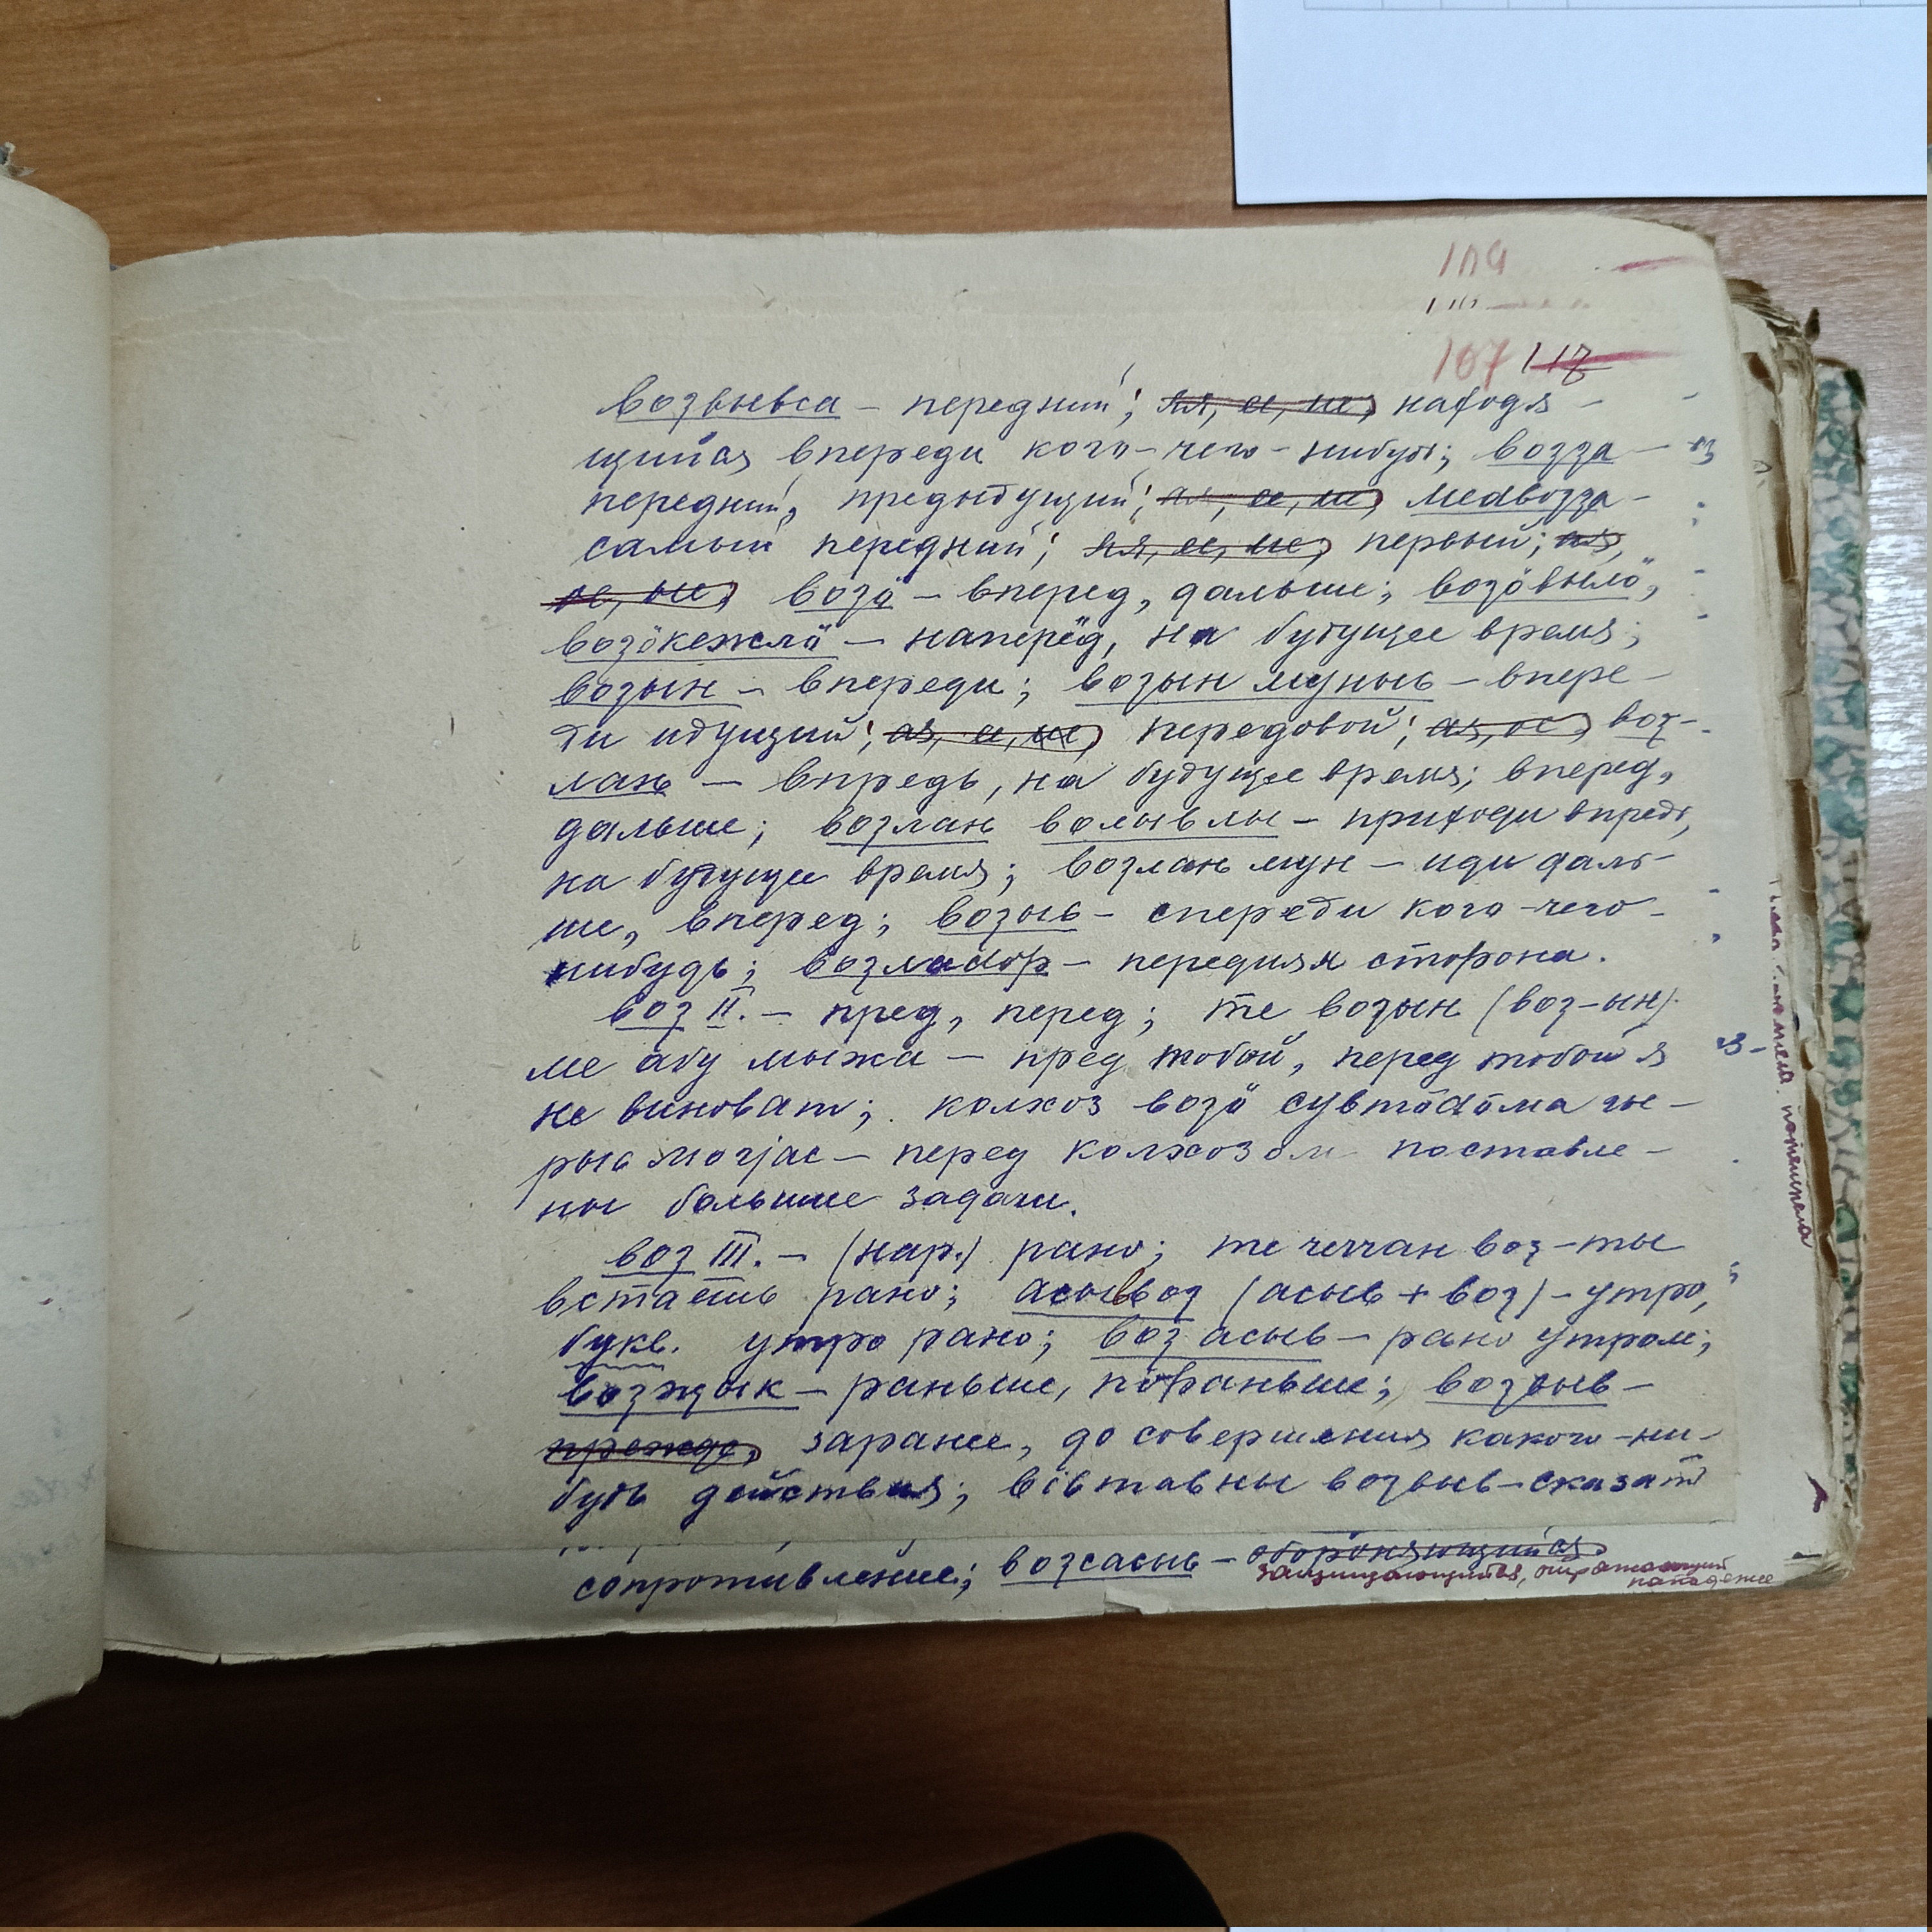 107 117
возвывса – передний; ~~яя, ее, ие,~~ находя–
щийся впереди кого-чего-нибудь; возза –
передний, предыдущий; ~~ая, ее, ие,~~ медвозза –
самый передний; ~~яя, ее, ие,~~ первый; ~~ая,~~
~~ое, ые,~~ возӧ – вперед, дальше; возӧвылӧ,
возӧкежлӧ – наперёд, на будущее время;
возын – впереди; возын мунысь – впере–
ди идущий; ~~ая, ее, ие,~~ передовой; ~~ая, ое,~~ воз–
лань – впредь, на будущее время; вперед,
дальше; возлань волывлы – приходи впредь,
на будущее время; возлань мун – иди даль–
ше, вперед; возысь – спереди кого-чего–
нибудь; возладор – передняя сторона.
воз II. – пред, перед; те возын (воз-ын)
ме абу мыжа – пред тобой, перед тобой я
не виноват; колхоз возӧ сувтӧdӧма гы–
рыс могјас – перед колхозом поставле–
ны большие задачи.
воз III. – (нар.) рано; те чеччан воз – ты
встаёшь рано; асыввоз (асыв + воз) – утро,
букв. утро рано; воз асыв – рано утром;
возжык – раньше, пораньше; возвыв –
~~прежде,~~ заранее, до совершения какого-ни–
будь действия; вiставны возвыв – сказать
сопротивление; возсасысь – ~~обороняющийся~~
защищающийся, отражающий
нападение